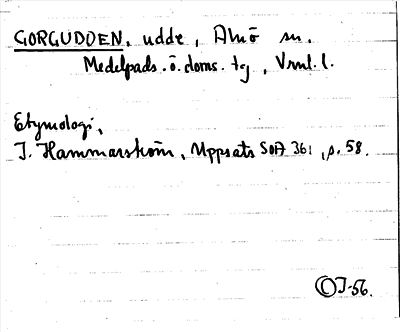 GORGUDDEN, udde, Alnö sn.
Medelpads ö. doms. tg, Vrnl. l.
Etymologi,
I. Hammarström, Uppsats SOA 361, p. 58.
© I-56.